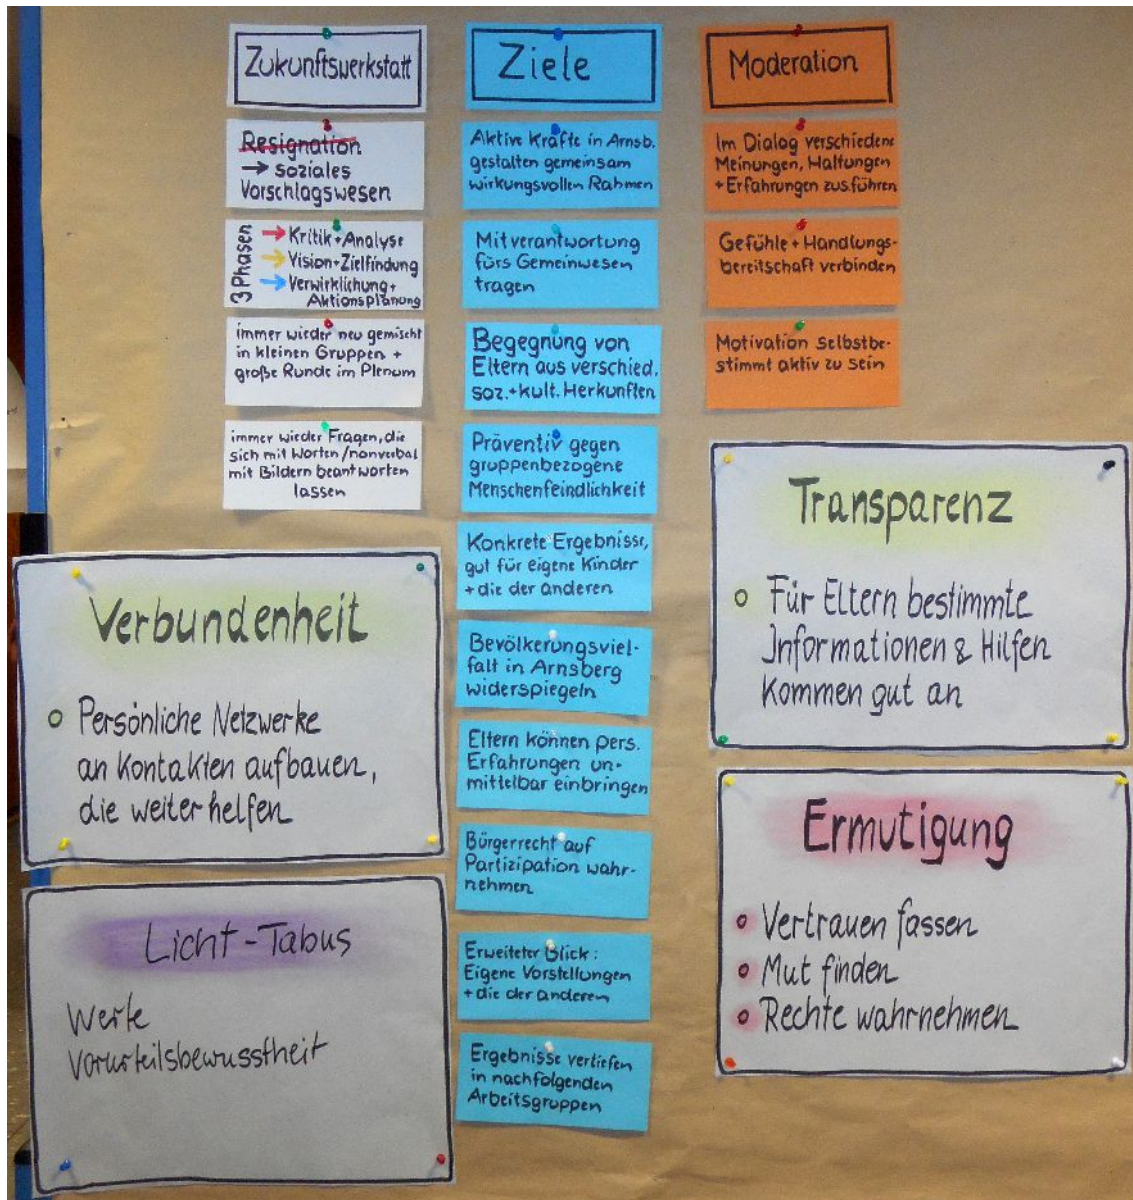 Zukunftswerkstatt
Resignation
→ soziales
Vorschlagswesen
3 Phasen
→ Kritik + Analyse
→ Vision + Zielfindung
→ Verwirklichung +
Aktionsplanung
immer wieder neu gemischt
in kleinen Gruppen +
große Runde im Plenum
immer wieder Fragen, die
sich mit Worten / nonverbal
mit Bildern beantworten
lassen
Ziele
Aktive Kräfte in Arnsb.
gestalten gemeinsam
wirkungsvollen Rahmen
Mitverantwortung
fürs Gemeinwesen
tragen
Begegnung von
Eltern aus verschied.
soz. + kult. Herkunften
Präventiv gegen
gruppenbezogene
Menschenfeindlichkeit
Konkrete Ergebnisse,
gut für eigene Kinder
+ die der anderen
Bevölkerungsviel-
falt in Arnsberg
widerspiegeln
Eltern können pers.
Erfahrungen un-
mittelbar einbringen
Bürgerrecht auf
Partizipation wahr-
nehmen
Erweiteter Blick:
Eigene Vorstellungen
+ die der anderen
Ergebnisse vertiefen
in nachfolgenden
Arbeitsgruppen
Moderation
Im Dialog verschiedene
Meinungen, Haltungen
+ Erfahrungen zus.führen
Gefühle + Handlungs-
bereitschaft verbinden
Motivation selbstbe-
stimmt aktiv zu sein
Verbundenheit
o Persönliche Netzwerke
an Kontakten aufbauen,
die weiter helfen
Licht-Tabus
Werte
Vorurteilsbewusstheit
Transparenz
o Für Eltern bestimmte
Informationen & Hilfen
kommen gut an
Ermutigung
o Vertrauen fassen
o Mut finden
o Rechte wahrnehmen